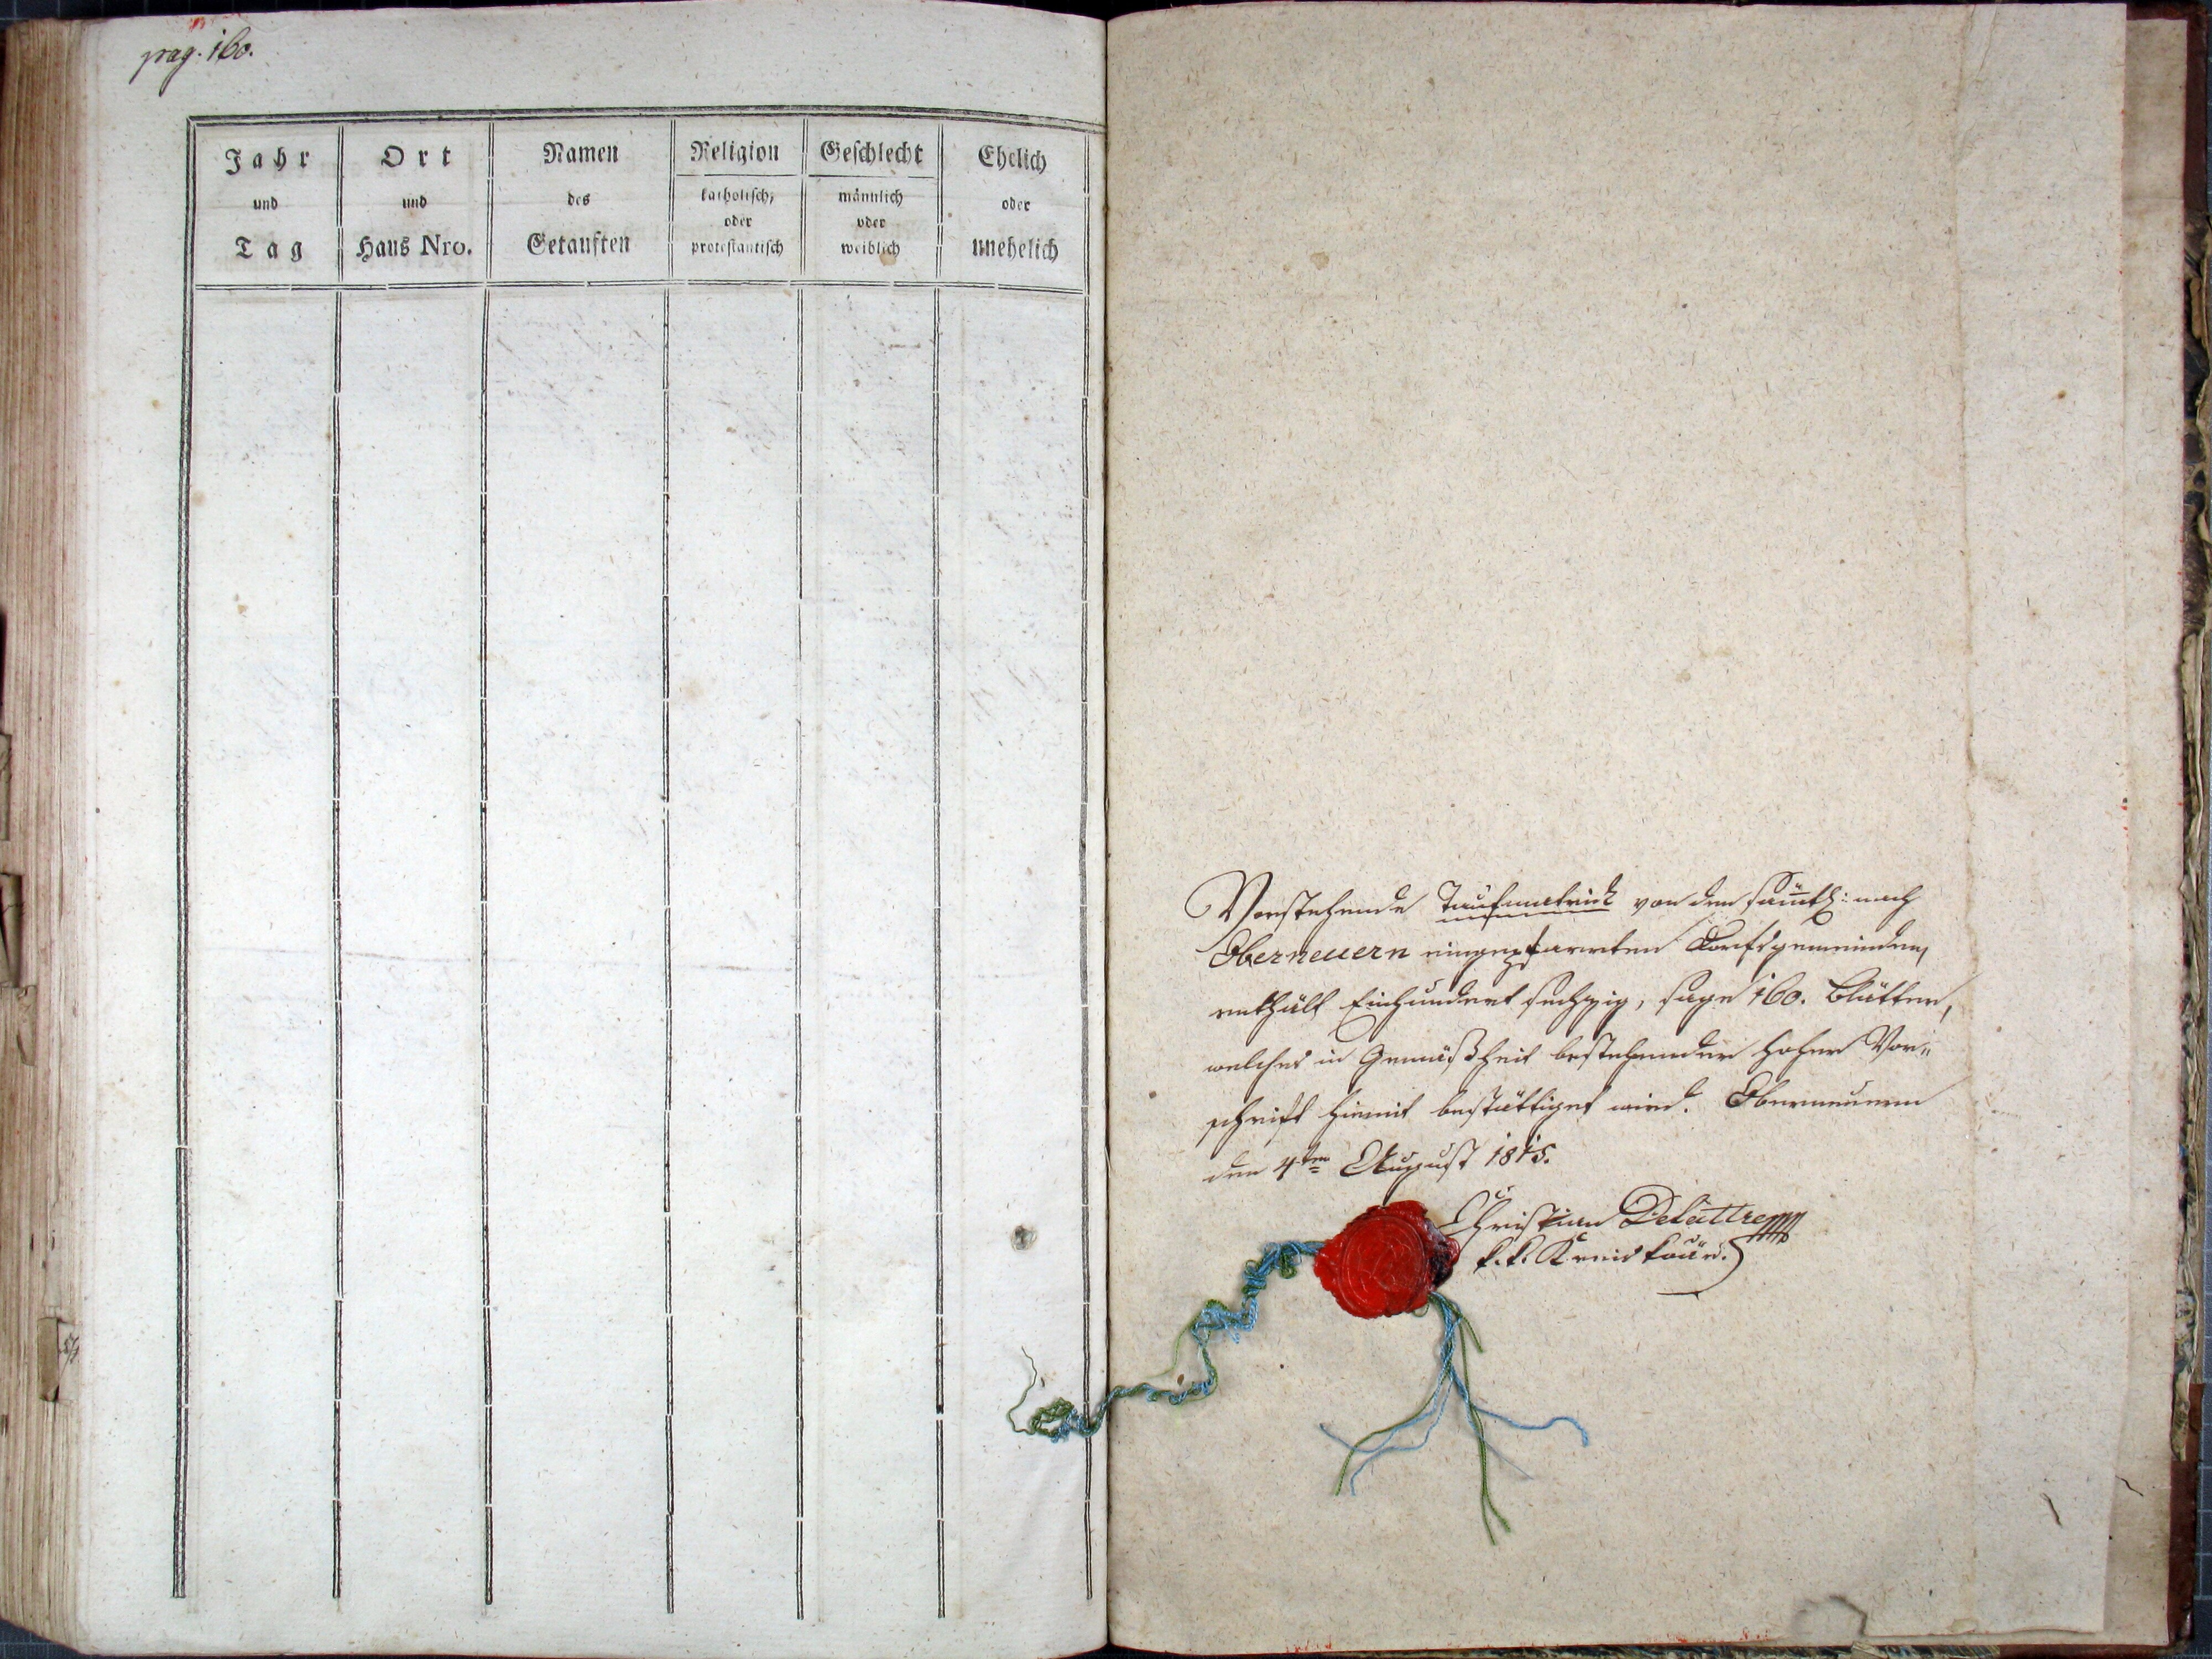 pag. 160.
Jahr
und
Tag
Ort
und
Haus Nro.
Namen
des
Getauften
Religion
katholisch,
oder
protestantisch
Geschlecht
männlich
oder
weiblich
Ehelich
oder
unehelich
Vorstehende Taufmatrick von den sämtl: nach
Oberneuern eingepfarrten Dorfsgemeinden,
enthält Einhundert sechzig, sage 160. Blätter,
welches in Gemäßheit bestehender hoher Vor„
schrift hiemit bestättiget wird. Oberneuern
den 4ten August 1815.
Christian Delattre
k. k. Kreiskoär.